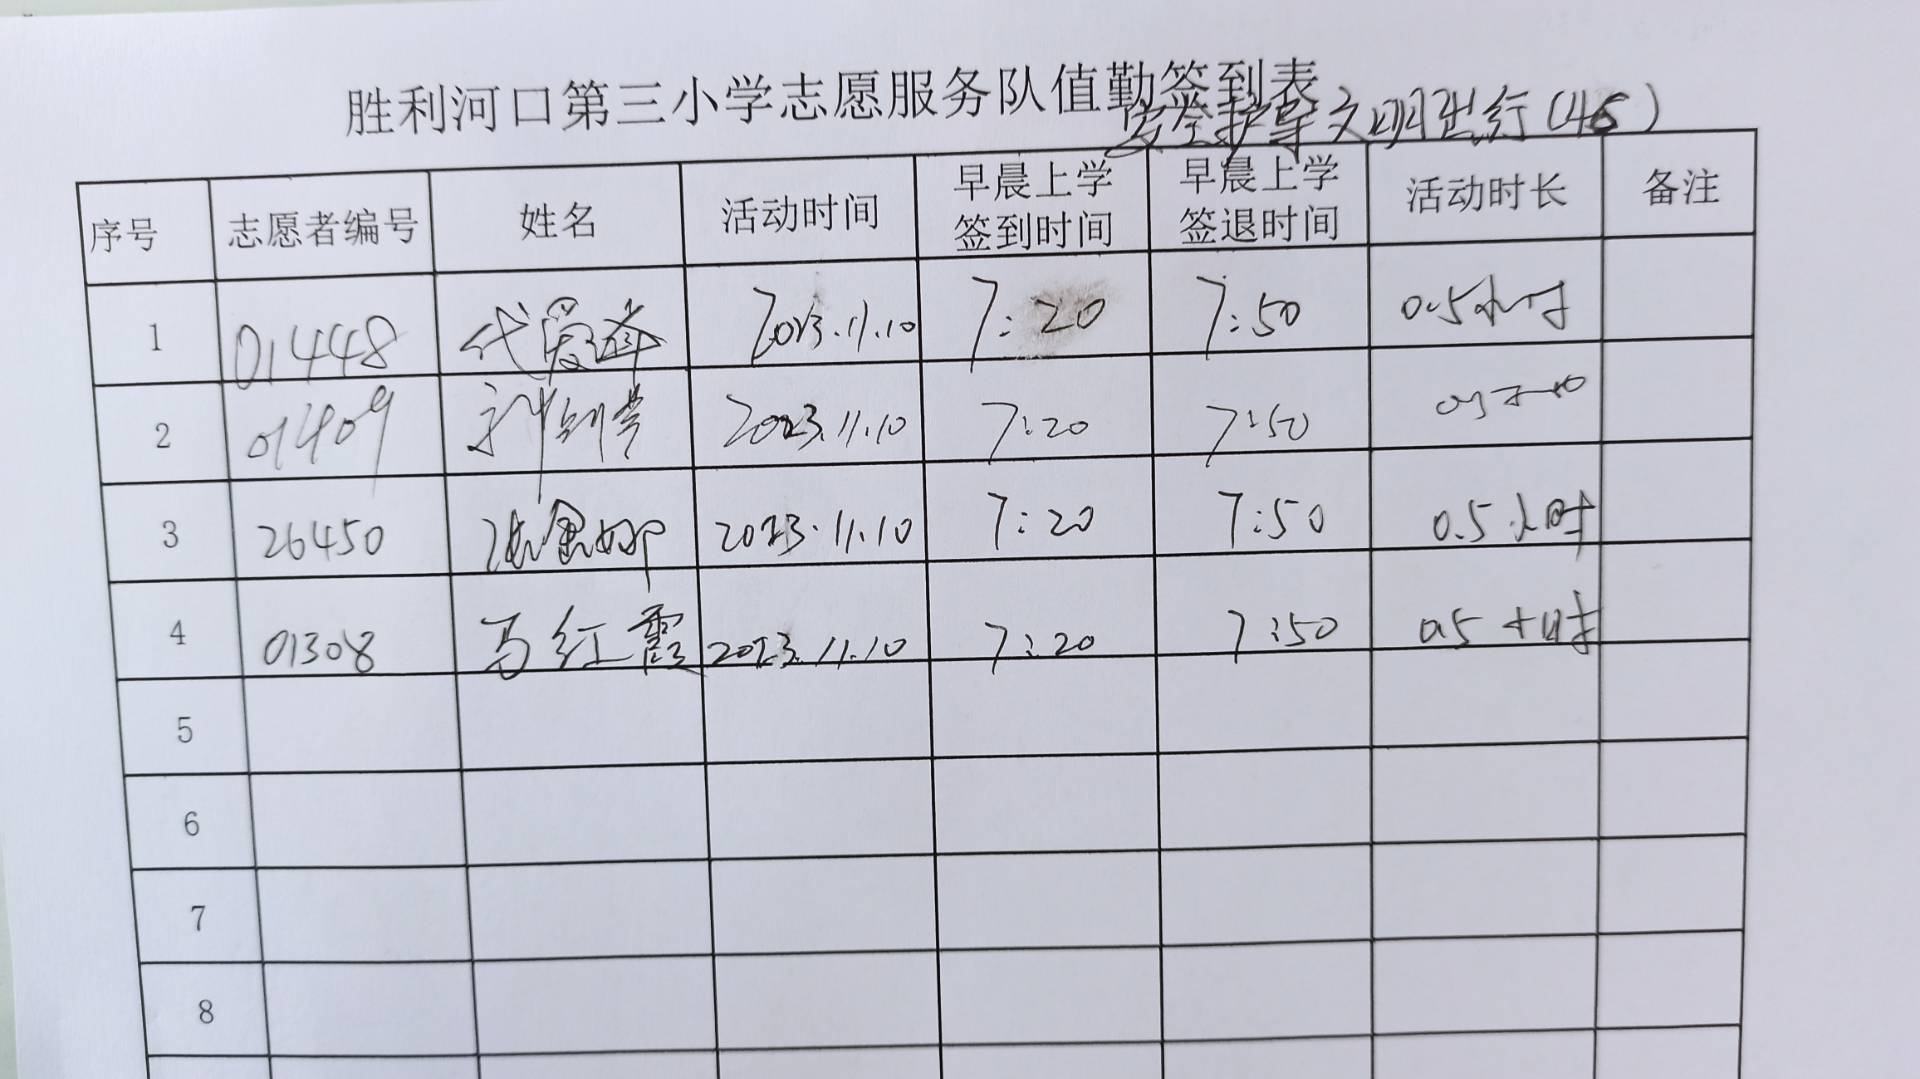 胜利河口第三小学志愿服务队值勤签到表
安全护导文明出行(46)
序号 志愿者编号 姓名 活动时间 早晨上学签到时间 早晨上学签退时间 活动时长 备注
1 01448 代爱萍 2023.11.10 7:20 7:50 0.5小时
2 01409 2023.11.10 7:20 7:50
3 26450 2023.11.10 7:20 7:50 0.5小时
4 01308 马红霞 2023.11.10 7:20 7:50 0.5小时
5
6
7
8